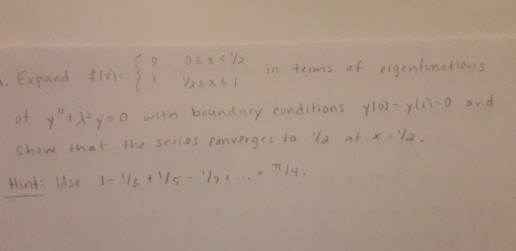 . Expand f(x) = { 0 0 ≤ x < 1/2
1 1/2 ≤ x ≤ 1 in terms of eigenfunctions
of y" + λ² y = 0 with boundary conditions y(0) = y(1) = 0 and
show that the series converges to 1/2 at x = 1/2.
Hint: Use 1 - 1/3 + 1/5 - 1/7 + ... = π/4.